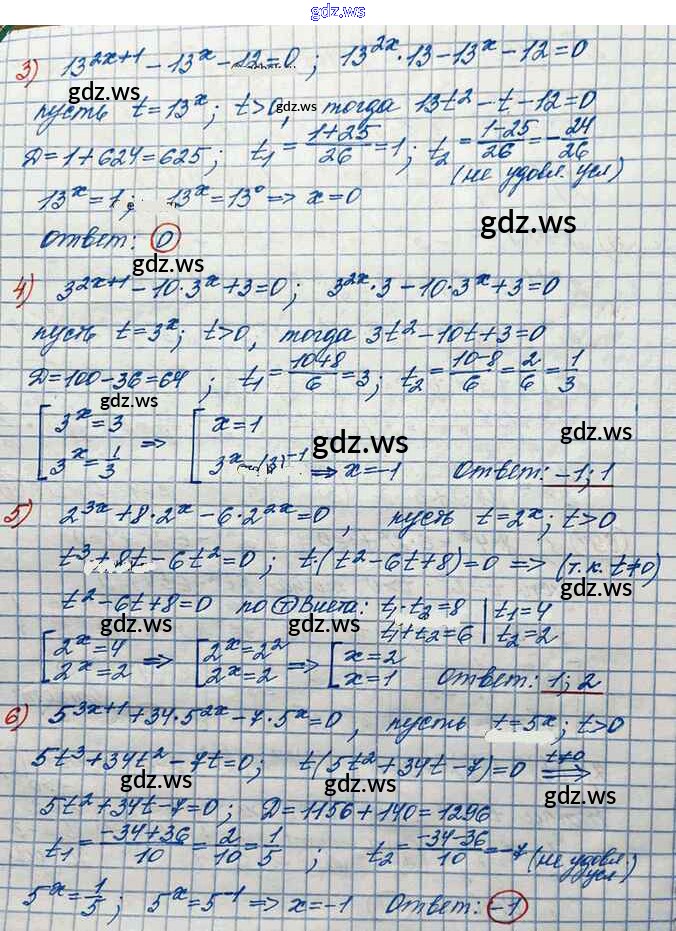 gdz.ws
3) 13^(2x+1) - 13^x - 12 = 0 ; 13^(2x)·13 - 13^x - 12 = 0
gdz.ws
пусть t = 13^x ; t > 0, тогда 13t² - t - 12 = 0
gdz.ws
D = 1 + 624 = 625 ; t₁ = (1+25)/26 = 1 ; t₂ = (1-25)/26 = -24/26
(не удовл. усл)
13^x = 1 ; 13^x = 13^0 => x = 0
gdz.ws
Ответ: 0
gdz.ws
4) 3^(2x+1) - 10·3^x + 3 = 0 ; 3^(2x)·3 - 10·3^x + 3 = 0
gdz.ws
пусть t = 3^x ; t > 0, тогда 3t² - 10t + 3 = 0
D = 100 - 36 = 64 ; t₁ = (10+8)/6 = 3 ; t₂ = (10-8)/6 = 2/6 = 1/3
gdz.ws
[3^x = 3 => [x = 1
gdz.ws
3^x = 1/3 3^x (3)^(-1) => x = -1 Ответ: -1; 1
gdz.ws
5) 2^(3x) + 8·2^x - 6·2^(2x) = 0, пусть t = 2^x ; t > 0
gdz.ws
t³ + 8t - 6t² = 0 ; t·(t² - 6t + 8) = 0 => (т.к. t≠0)
gdz.ws
t² - 6t + 8 = 0 по Т Виета: t₁·t₂ = 8 | t₁ = 4
t₁ + t₂ = 6 | t₂ = 2
gdz.ws
[2^x = 4 => [2^x = 2² => [x = 2
2^x = 2 2^x = 2 x = 1 Ответ: 1; 2
gdz.ws
6) 5^(3x+1) + 34·5^(2x) - 7·5^x = 0, пусть t = 5^x ; t > 0
gdz.ws
5t³ + 34t² - 7t = 0 ; t(5t² + 34t - 7) = 0 t≠0 =>
gdz.ws
gdz.ws
5t² + 34t - 7 = 0 ; D = 1156 + 140 = 1296
t₁ = (-34+36)/10 = 2/10 = 1/5 ; t₂ = (-34-36)/10 = -7 (не удовл. усл)
5^x = 1/5 ; 5^x = 5^(-1) => x = -1 Ответ: -1
gdz.ws